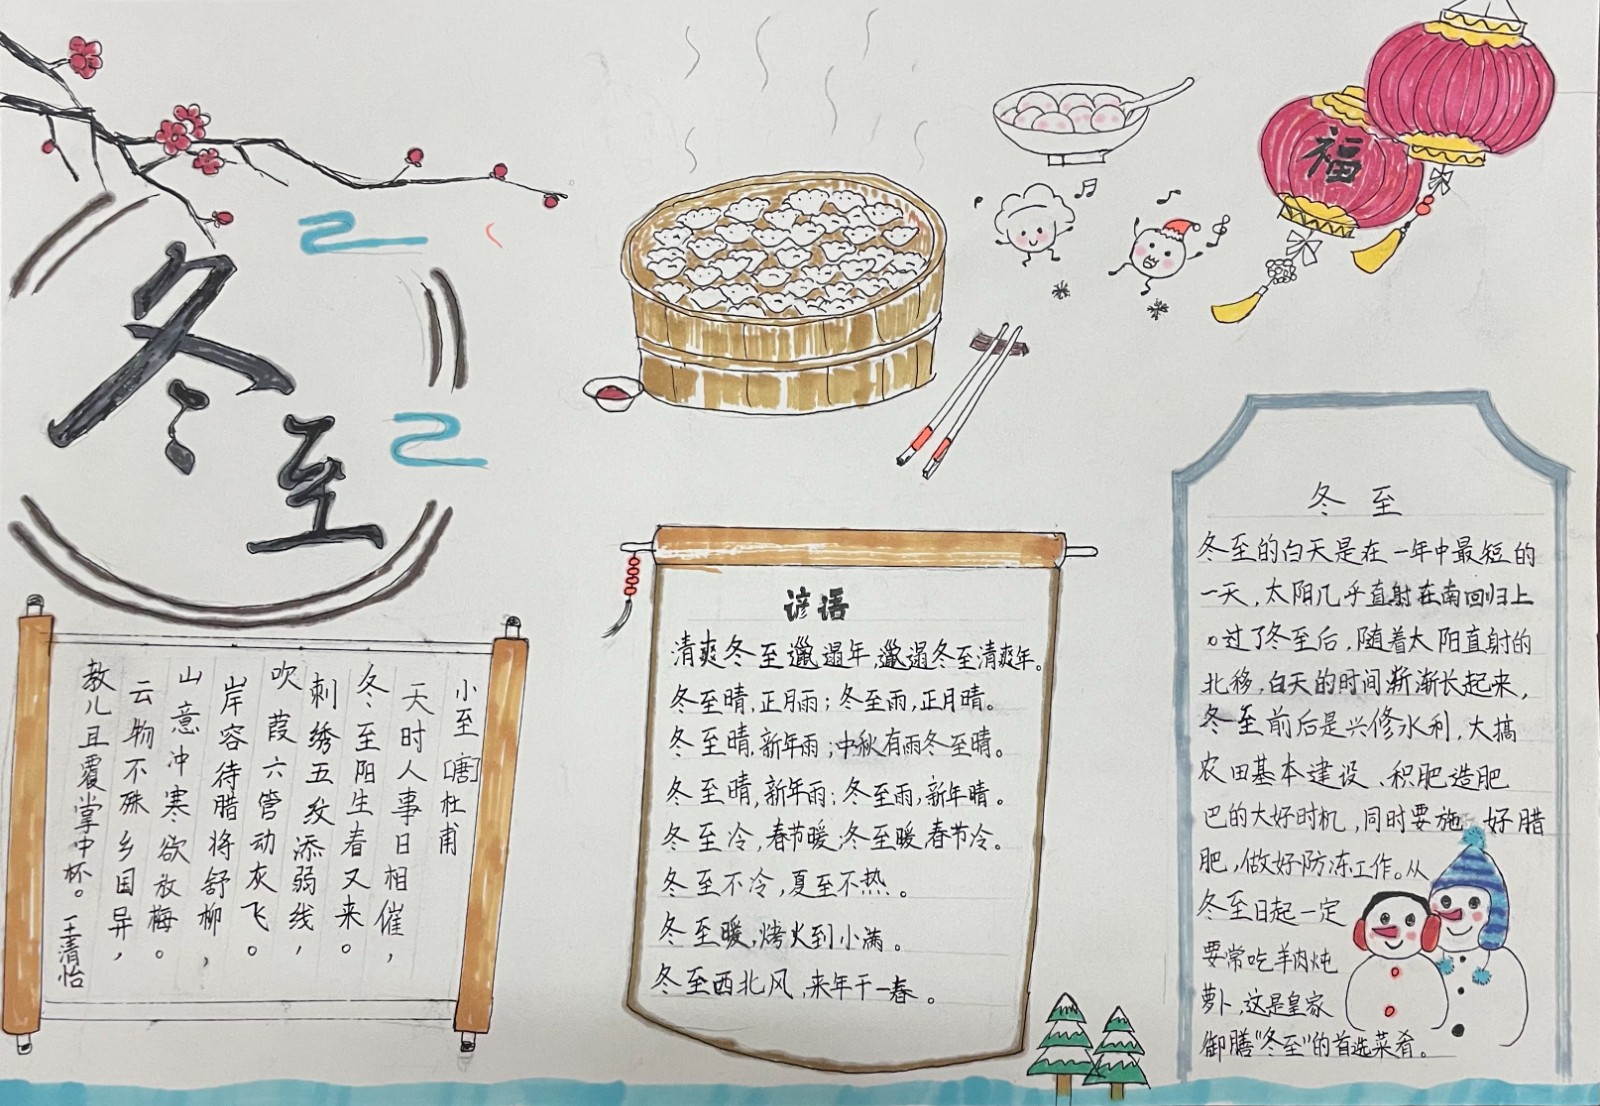 冬至
福
小至 [唐]杜甫
天时人事日相催，
冬至阳生春又来。
刺绣五纹添弱线，
吹葭六管动灰飞。
岸容待腊将舒柳，
山意冲寒欲放梅。
云物不殊乡国异，
教儿且覆掌中杯。王清怡
谚语
清爽冬至邋遢年，邋遢冬至清爽年。
冬至晴，正月雨；冬至雨，正月晴。
冬至晴，新年雨；中秋有雨冬至晴。
冬至晴，新年雨；冬至雨，新年晴。
冬至冷，春节暖；冬至暖，春节冷。
冬至不冷，夏至不热。
冬至暖，烤火到小满。
冬至西北风，来年干一春。
冬至
冬至的白天是在一年中最短的
一天，太阳几乎直射在南回归上
。过了冬至后，随着太阳直射的
北移，白天的时间渐渐长起来，
冬至前后是兴修水利，大搞
农田基本建设、积肥造肥
巴的大好时机，同时要施好腊
肥，做好防冻工作。从
冬至日起一定
要常吃羊肉炖
萝卜，这是皇家
御膳"冬至"的首选菜肴。